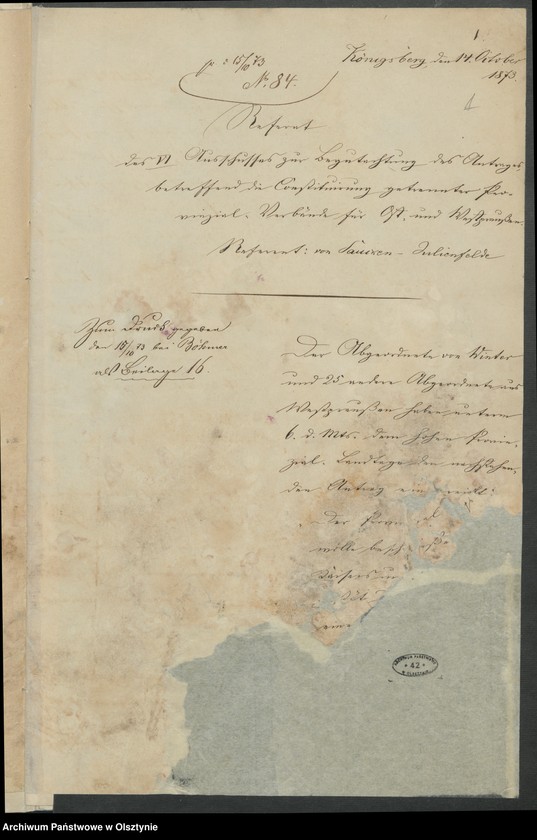 1
Königsberg, den 14. October
1873.
p: 15/10 73
No. 84.
Referat
des VI Ausschusses zur Begutachtung des Antrages,
betreffend die Constituirung getrennter Pro-
vinzial-Verbände für Ost- und Westpreußen.
Referent: von Saucken-Julienfelde
Zum Druck gegeben
den 15/10 73 bei Böhmer
als Beilage 16.
Der Abgeordnete von Winter
und 25 andere Abgeordnete aus
Westpreußen haben unterm
6. d. Mts. dem hohen Provin-
zial-Landtage den nachstehen-
den Antrag eingereicht:
Der Prov
wolle besch
Kaisers u
ARCHIWUM PAŃSTWOWE
* 42 *
W OLSZTYNIE
Archiwum Państwowe w Olsztynie